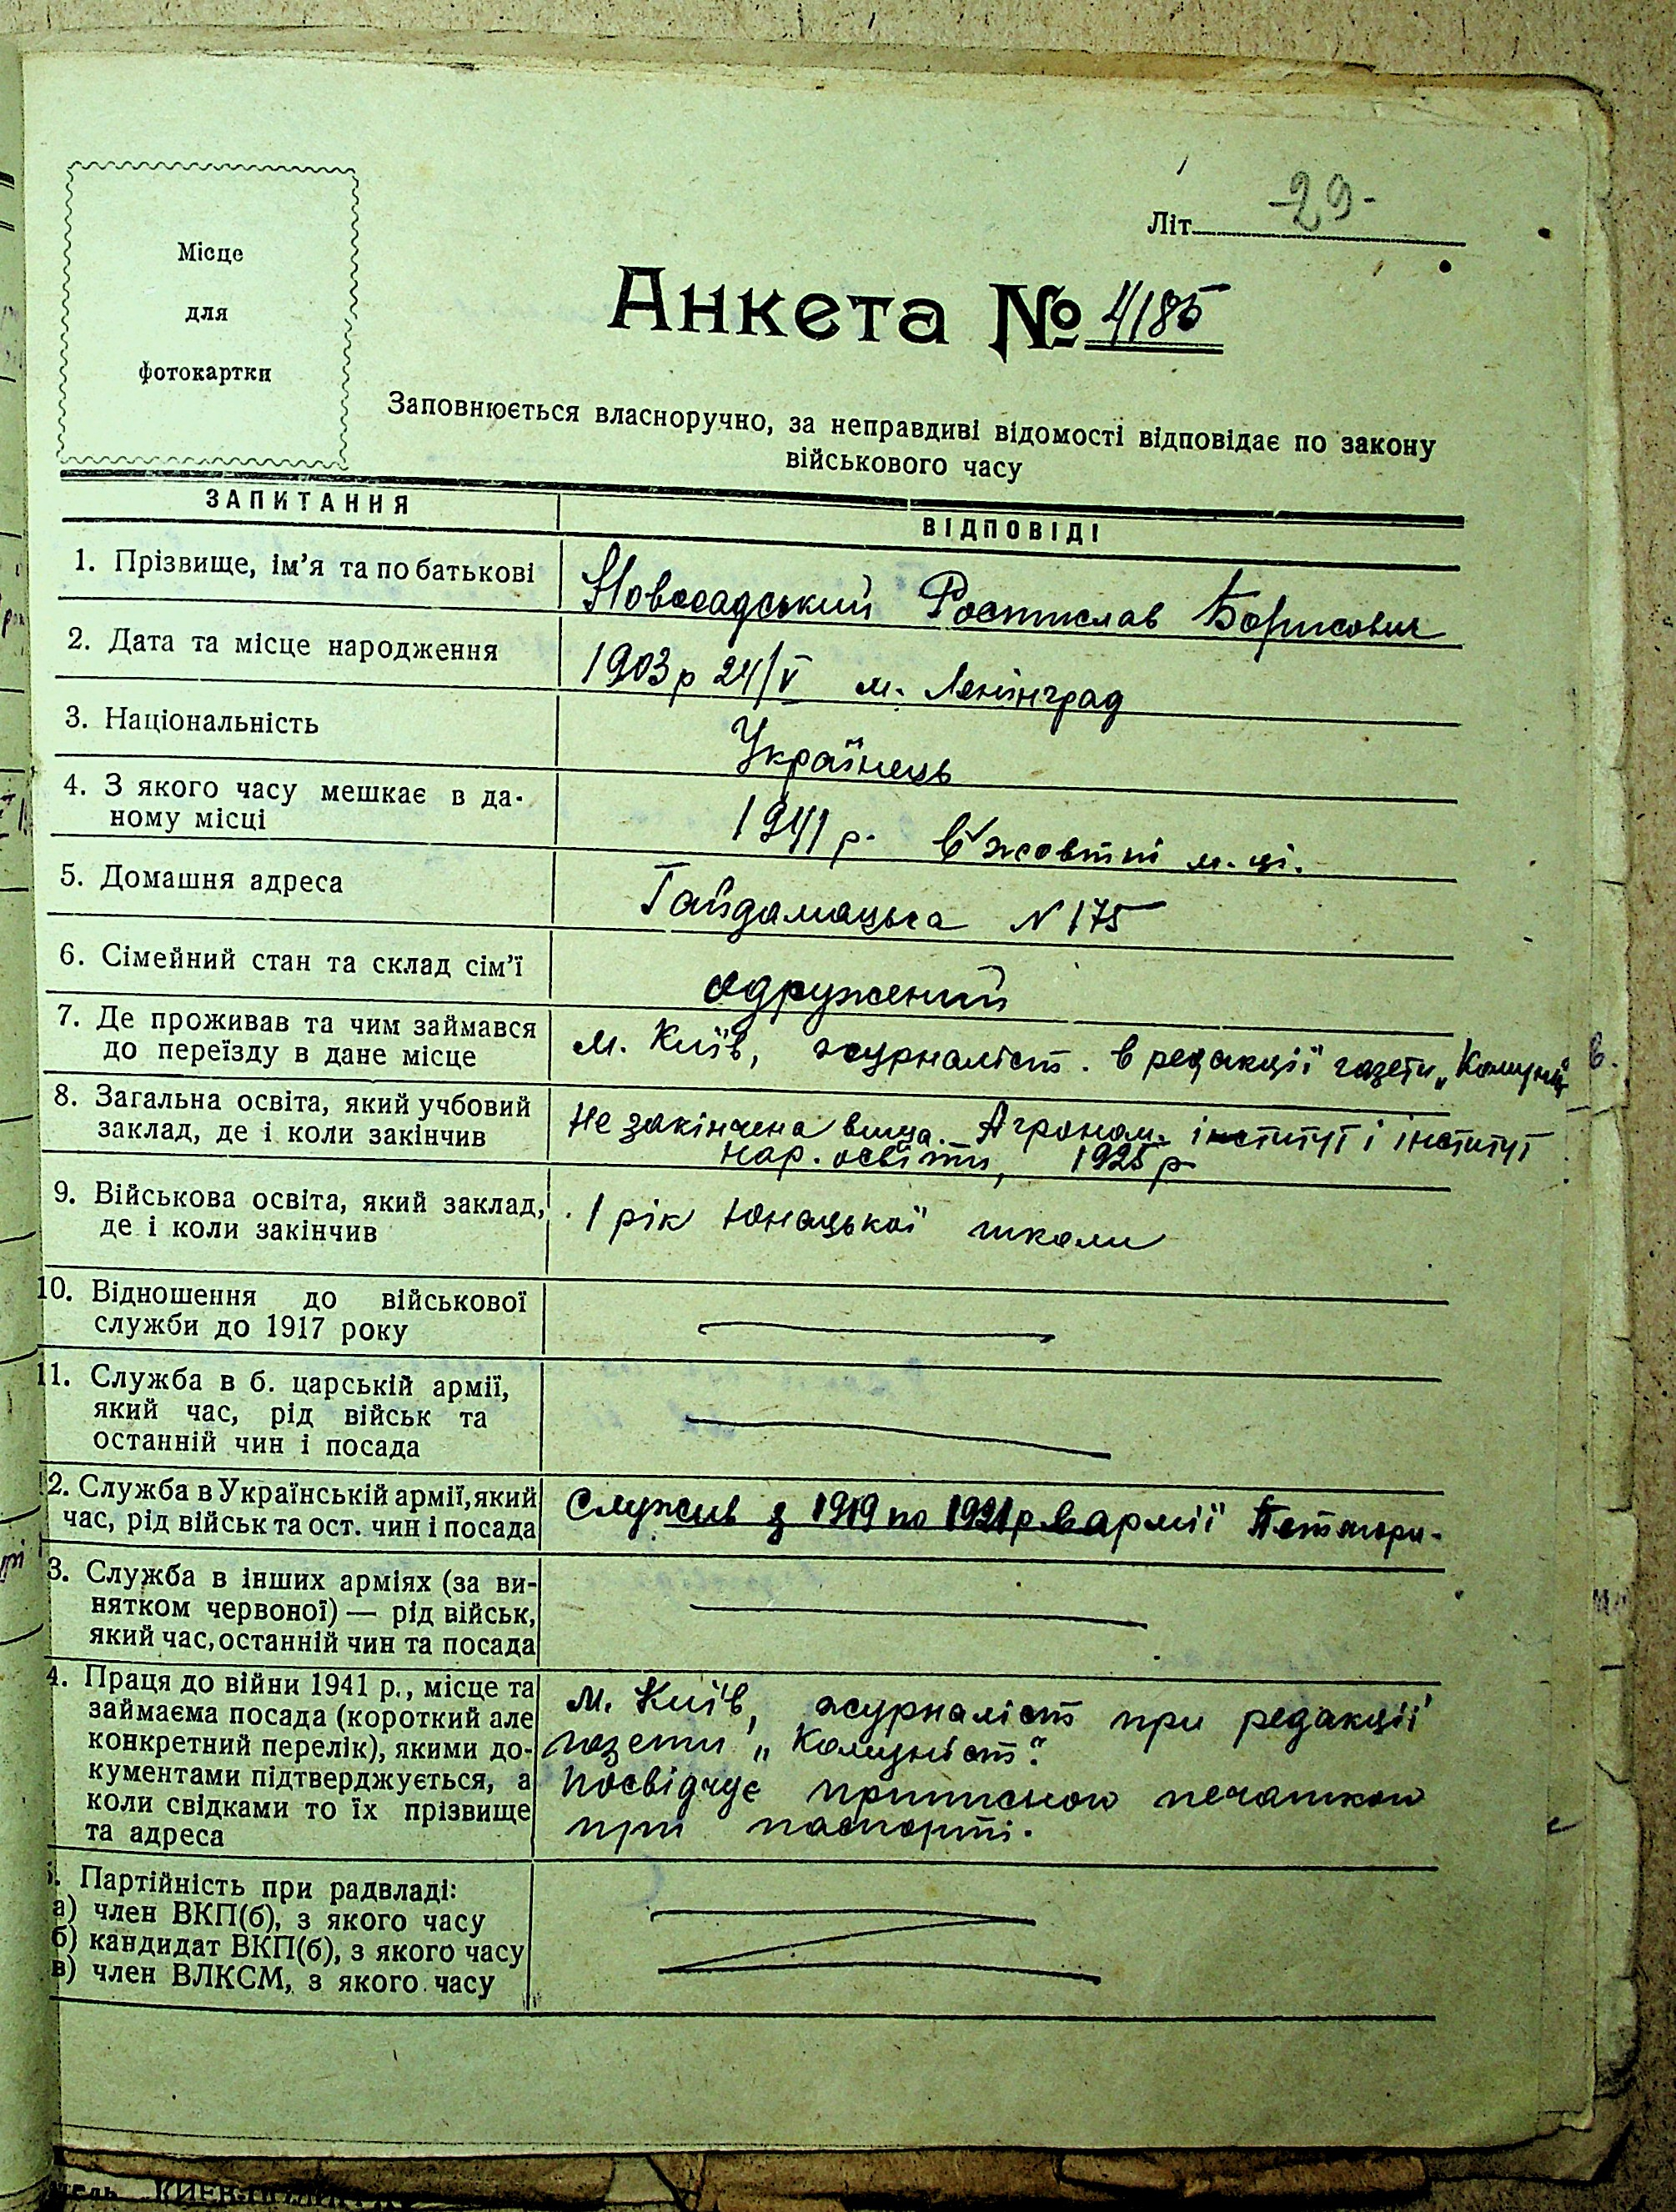 Місце
для
фотокартки
Літ. -29-
Анкета № 4/185
Заповнюється власноручно, за неправдиві відомості відповідає по закону
військового часу
ЗАПИТАННЯ
ВІДПОВІДІ
1. Прізвище, ім'я та по батькові
Новосадський Ростислав Борисович
2. Дата та місце народження
1903 р 24/V м. Ленінград
3. Національність
Українець
4. З якого часу мешкає в да-
ному місці
1941 р. в жовтні м-ці.
5. Домашня адреса
Гайдамацька N 175
6. Сімейний стан та склад сім'ї
одружений
7. Де проживав та чим займався
до переїзду в дане місце
м. Київ, журналіст. в редакції газети „Комуніст"
8. Загальна освіта, який учбовий
заклад, де і коли закінчив
Не закінчена вища. Агроном. інститут і інститут
нар. освіти, 1925 р
9. Військова освіта, який заклад,
де і коли закінчив
1 рік Юнацької школи
10. Відношення до військової
служби до 1917 року
11. Служба в б. царській армії,
який час, рід військ та
останній чин і посада
12. Служба в Українській армії, який
час, рід військ та ост. чин і посада
Служив з 1919 по 1921 р в армії Петлюри.
3. Служба в інших арміях (за ви-
нятком червоної) — рід військ,
який час, останній чин та посада
4. Праця до війни 1941 р., місце та
займаєма посада (короткий але
конкретний перелік), якими до-
кументами підтверджується, а
коли свідками то їх прізвище
та адреса
м. Київ, журналіст при редакції
газети „Комуніст".
Посвідчує приписною печаткою
при паспорті.
. Партійність при радвладі:
а) член ВКП(б), з якого часу
б) кандидат ВКП(б), з якого часу
в) член ВЛКСМ, з якого часу